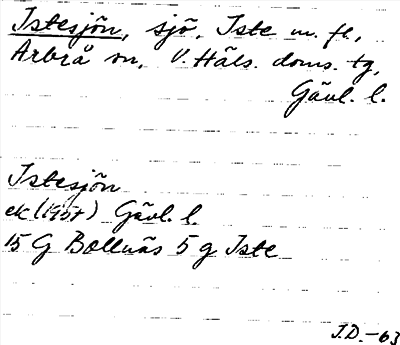 Istesjön, sjö, Iste m. fl.,
Arbrå sn, V. Häls. doms. tg,
Gävl. l.
Istesjön
ek (1957) Gävl. l.
15 G Bollnäs 5 g Iste
J.D.-63